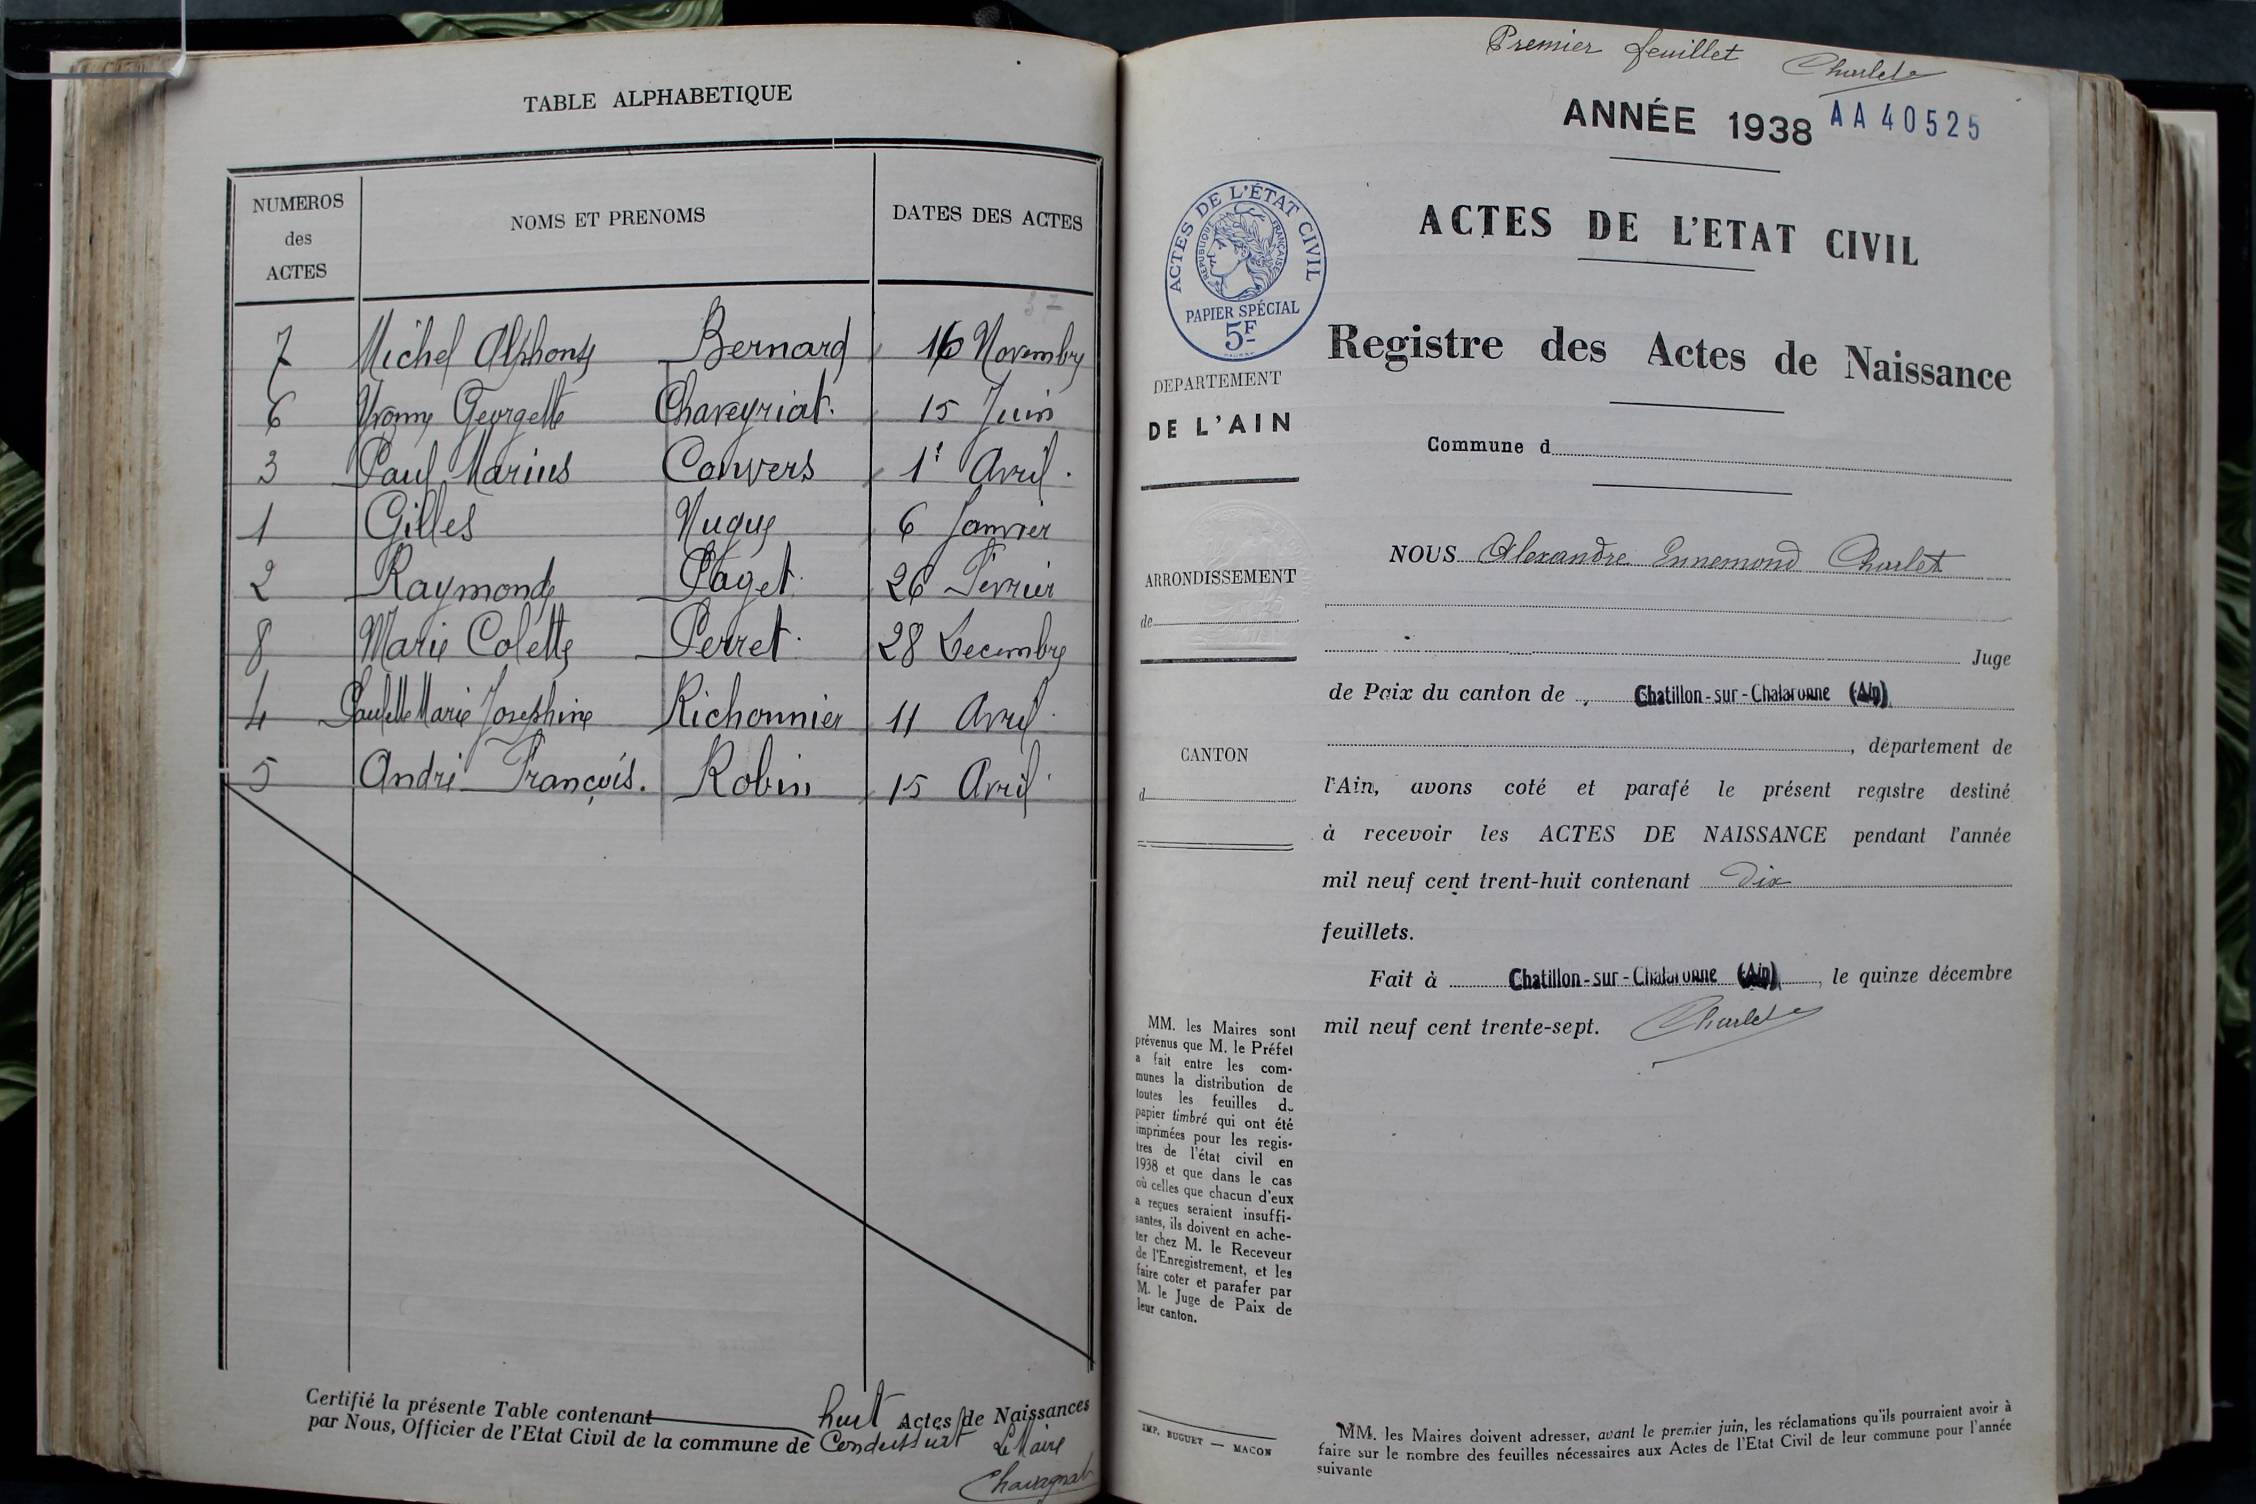 TABLE ALPHABETIQUE
NUMEROS des ACTES NOMS ET PRENOMS DATES DES ACTES
37
7 Michel Alphonse Bernard 16 Novembre
6 Yvonne Georgette Chaveyriat. 15 Juin
3 Paul Marius Convers 1er Avril.
1 Gilles Nugue 6 Janvier
2 Raymonde Paget. 26 Fevrier
8 Marie Colette Perret. 28 Decembre
4 Paulette Marie Josephine Richonnier 11 Avril.
5 André François. Robin 15 Avril.
Certifié la présente Table contenant huit Actes de Naissances
par Nous, Officier de l'Etat Civil de la commune de Condeissiat Le Maire
Premier feuillet Charlet
ANNÉE 1938 AA40525
ACTES DE L'ÉTAT CIVIL
RÉPUBLIQUE FRANÇAISE
PAPIER SPÉCIAL
5F
ACTES DE L'ETAT CIVIL
Registre des Actes de Naissance
DEPARTEMENT
DE L'AIN
Commune d
ARRONDISSEMENT
de
CANTON
d
NOUS Alexandre Ennemond Charlet
Juge
de Paix du canton de , Chatillon-sur-Chalaronne (Ain)
, département de
l'Ain, avons coté et parafé le présent registre destiné
à recevoir les ACTES DE NAISSANCE pendant l'année
mil neuf cent trent-huit contenant Dix
feuillets.
Fait à Chatillon-sur-Chalaronne (Ain), le quinze décembre
mil neuf cent trente-sept. Charlet
MM. les Maires sont
prévenus que M. le Préfet
a fait entre les com-
munes la distribution de
toutes les feuilles du
papier timbré qui ont été
imprimées pour les regis-
tres de l'état civil en
1938 et que dans le cas
où celles que chacun d'eux
a reçues seraient insuffi-
santes, ils doivent en ache-
ter chez M. le Receveur
de l'Enregistrement, et les
faire coter et parafer par
M. le Juge de Paix de
leur canton.
IMP. BUGUET — MACON
MM. les Maires doivent adresser, avant le premier juin, les réclamations qu'ils pourraient avoir à
faire sur le nombre des feuilles nécessaires aux Actes de l'Etat Civil de leur commune pour l'année
suivante